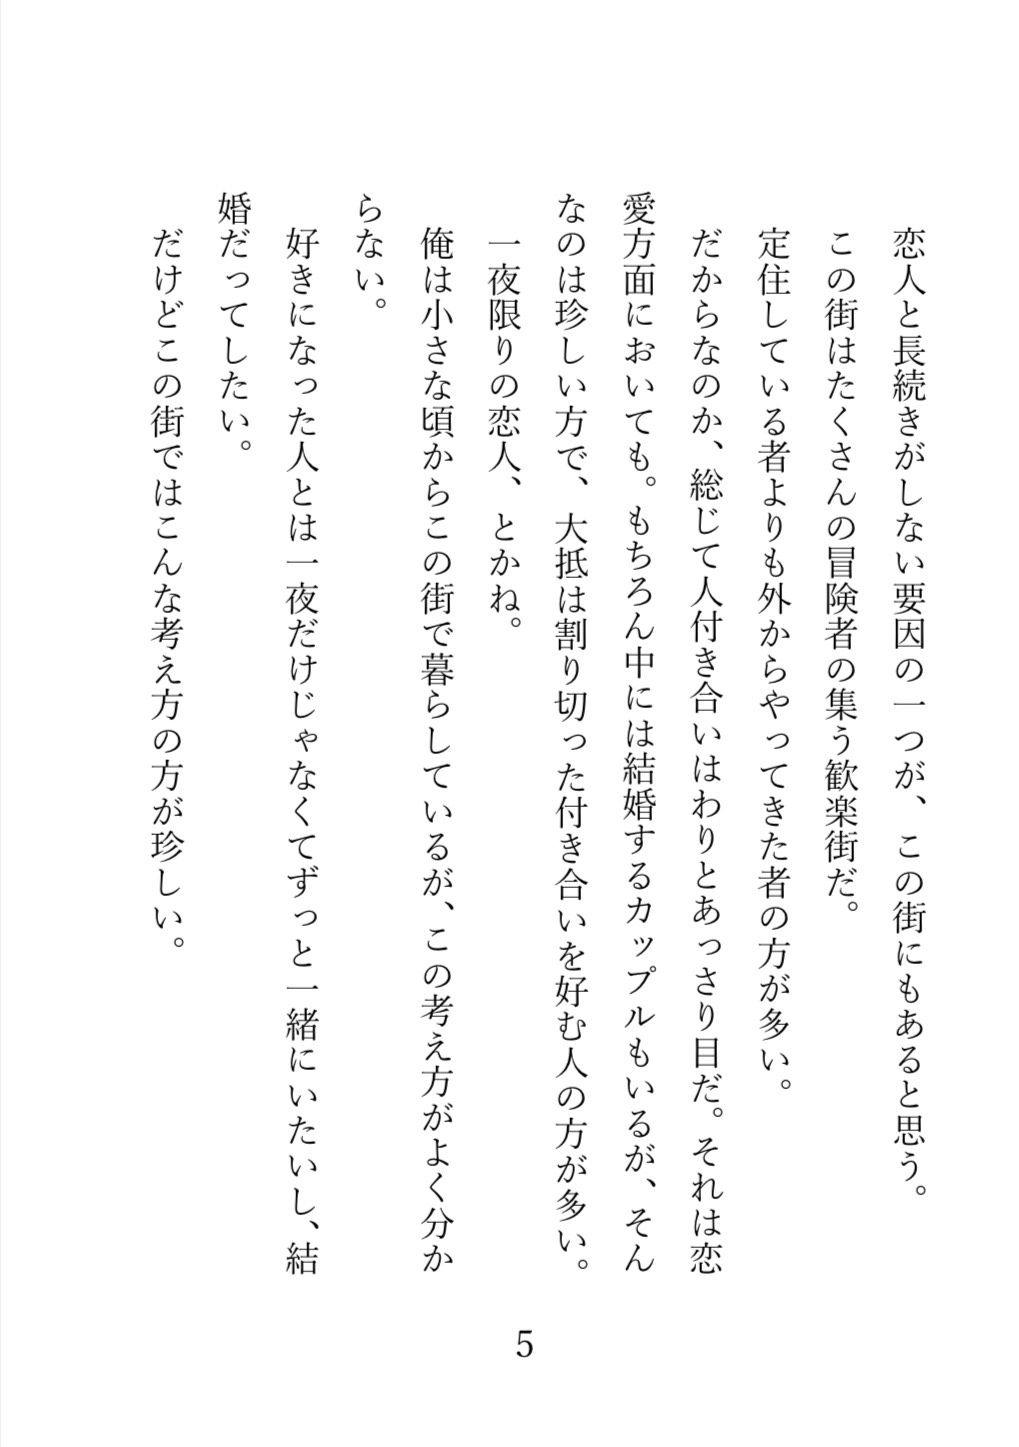 恋人と長続きがしない要因の一つが、この街にもあると思う。
この街はたくさんの冒険者の集う歓楽街だ。
定住している者よりも外からやってきた者の方が多い。
だからなのか、総じて人付き合いはわりとあっさり目だ。それは恋
愛方面においても。もちろん中には結婚するカップルもいるが、そん
なのは珍しい方で、大抵は割り切った付き合いを好む人の方が多い。
一夜限りの恋人、とかね。
俺は小さな頃からこの街で暮らしているが、この考え方がよく分か
らない。
好きになった人とは一夜だけじゃなくてずっと一緒にいたいし、結
婚だってしたい。
だけどこの街ではこんな考え方の方が珍しい。
5